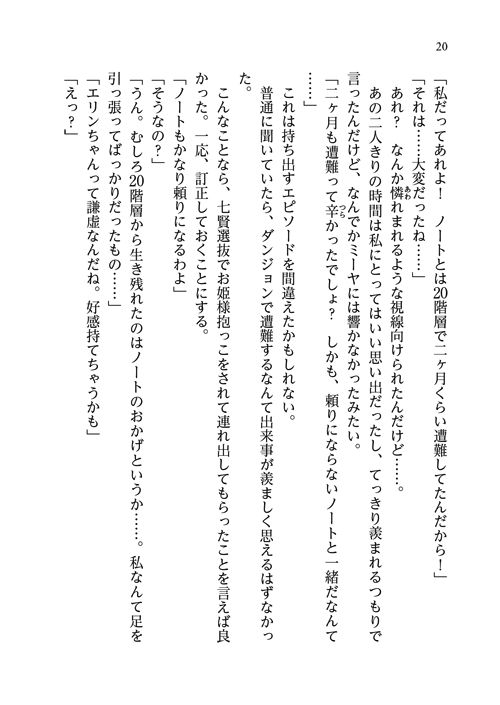 20
「私だってあれよ！　ノートとは20階層で二ヶ月くらい遭難してたんだから！」
「それは……大変だったね……」
あれ？　なんか憐れまれるような視線向けられたんだけど……。
あの二人きりの時間は私にとってはいい思い出だったし、てっきり羨まれるつもりで
言ったんだけど、なんでかミーヤには響かなかったみたい。
「二ヶ月も遭難って辛かったでしょ？　しかも、頼りにならないノートと一緒だなんて
……」
これは持ち出すエピソードを間違えたかもしれない。
普通に聞いていたら、ダンジョンで遭難するなんて出来事が羨ましく思えるはずなかっ
た。
こんなことなら、七賢選抜でお姫様抱っこをされて連れ出してもらったことを言えば良
かった。一応、訂正しておくことにする。
「ノートもかなり頼りになるわよ」
「そうなの？」
「うん。むしろ20階層から生き残れたのはノートのおかげというか……。私なんて足を
引っ張ってばっかりだったもの……」
「エリンちゃんって謙虚なんだね。好感持てちゃうかも」
「えっ？」